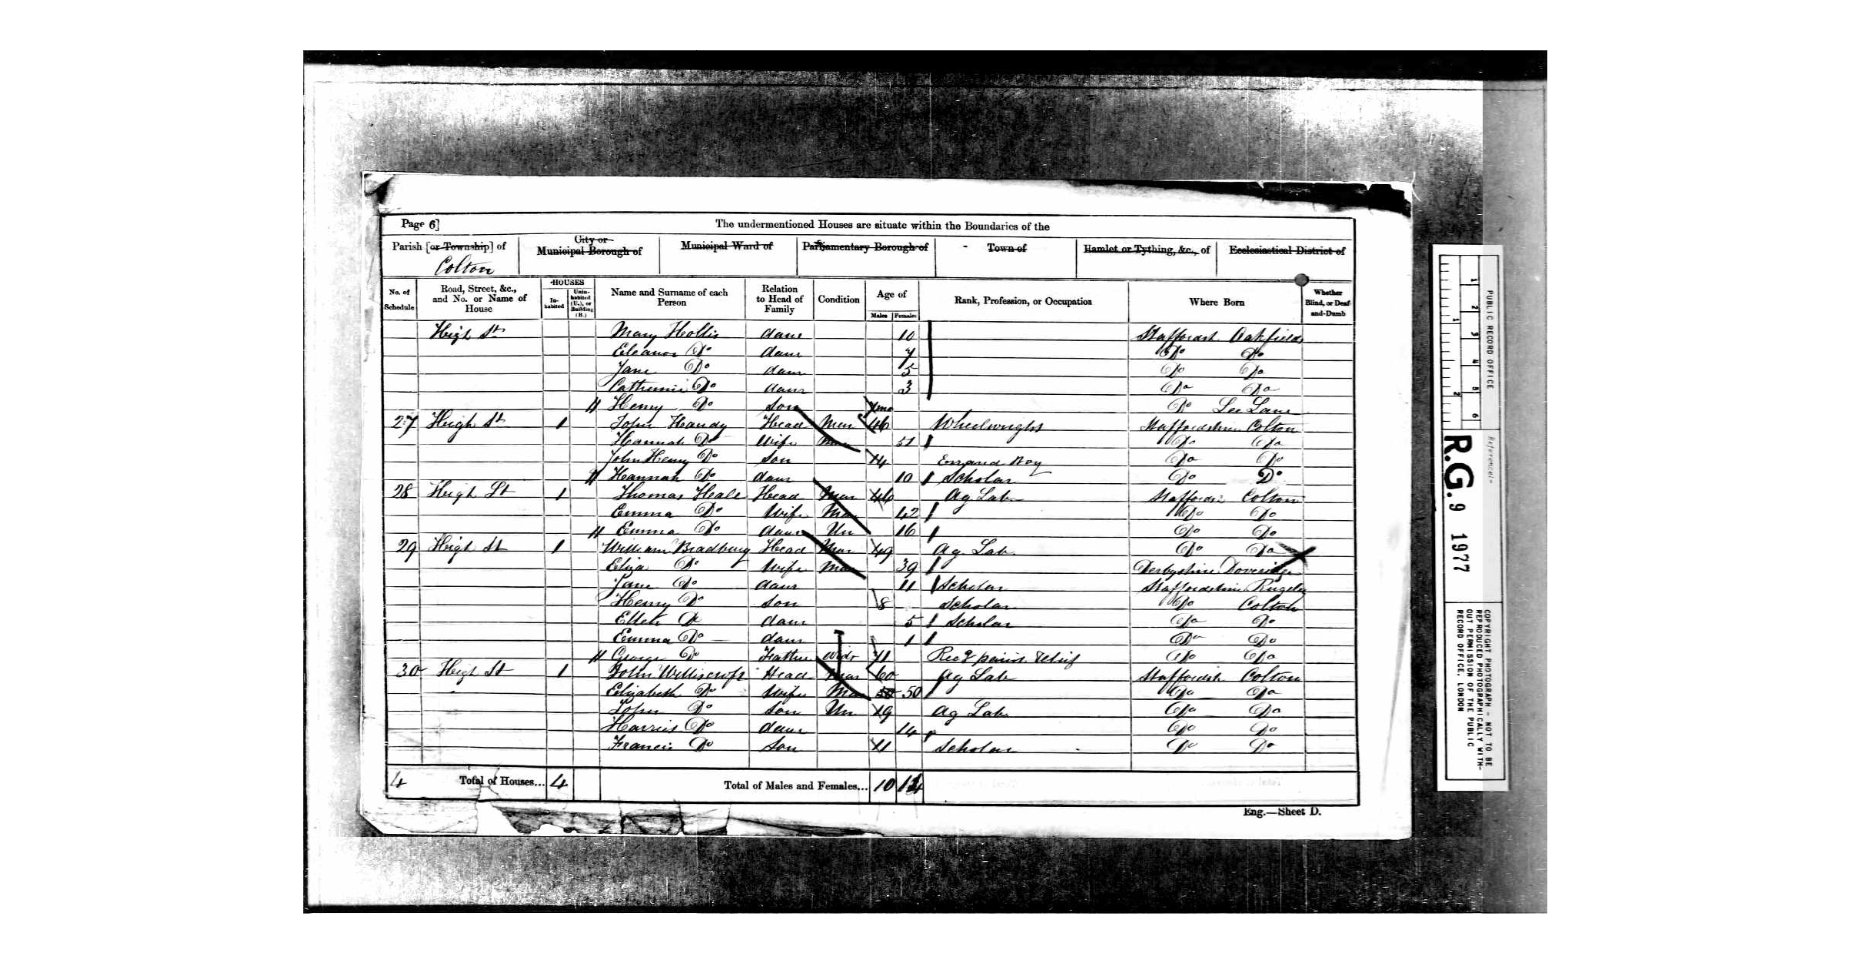 Page 6]
The undermentioned Houses are situate within the Boundaries of the
Parish [or Township] of
City or
Municipal Borough of
Municipal Ward of
Parliamentary Borough of
Town of
Hamlet or Tything, &c., of
Ecclesiastical District of
Colton
No. of Schedule
Road, Street, &c., and No. or Name of House
HOUSES
In-habited
Unin-habited (U.), or Building (B.)
Name and Surname of each Person
Relation to Head of Family
Condition
Age of
Males
Females
Rank, Profession, or Occupation
Where Born
Whether Blind, or Deaf-and-Dumb
High St Mary Hollis daur 10 Oakfield
Eleanor Do daur 7 Do Do
Jane Do daur 5 Do Do
Catherine Do daur 3 Do Do
Henry Do son Do Lee Lane
27 High St 1 John Handy Head Mar 46 Wheelwright Staffordshire Colton
Hannah Do Wife Mar 51 Do Do
John Henry Do Son 14 Errand Boy Do Do
Hannah Do daur 10 Scholar Do Do
28 High St 1 Thomas Heale Head Mar 46 Ag Lab Colton
Emma Do Wife Mar 42 Do Do
Emma Do daur Un 16 Do Do
29 High St 1 William Bradbury Head Mar 49 Ag Lab Do Do
Eliza Do Wife Mar 39 Derbyshire Doveridge
Jane Do daur 11 Scholar Staffordshire Rugeley
Henry Do Son 8 Scholar Do Colton
Ellen Do daur 5 Scholar Do Do
Emma Do daur 1 Do Do
George Do Father Widr 71 Do Do
30 High St 1 John Head Mar 60 Ag Lab Colton
Elizabeth Do Wife Mar 50 Do Do
John Do Son Un 19 Ag Lab Do Do
Do daur 14 Do Do
Francis Do Son 11 Scholar Do Do
4 Total of Houses... 4 Total of Males and Females... 10
Eng.—Sheet D.
PUBLIC RECORD OFFICE
1 2 3 4 5 6
1 2
Reference:-
R.G. 9 1977
COPYRIGHT PHOTOGRAPH - NOT TO BE
REPRODUCED PHOTOGRAPHICALLY WITH-
OUT PERMISSION OF THE PUBLIC
RECORD OFFICE, LONDON